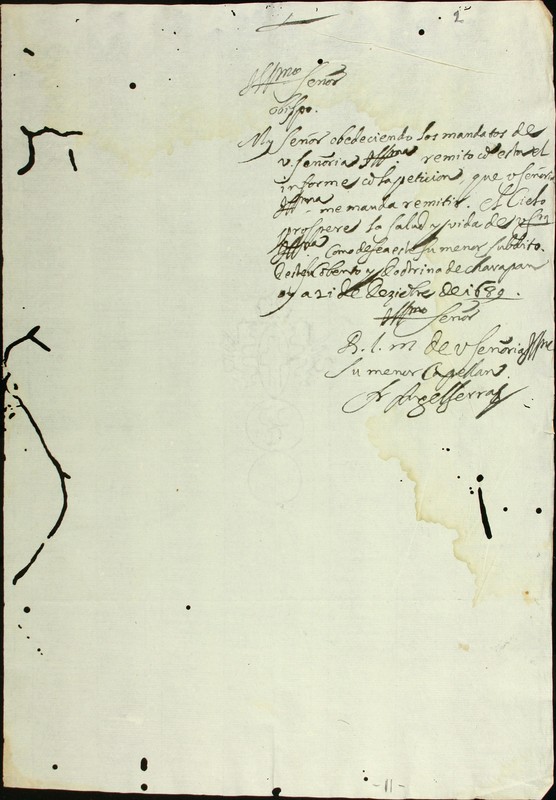 2
Yllmo Señor
Obispo.
My Señor obedeciendo los mandatos de
V. Señoria Yllma. remito cō esta el
informe cō la peticion, que v señoria
Yllma. me manda remitir. el Cielo
prospere la salud y vida de v Sria
Yllma. Como desea este su menor subdito.
de este Cōbento y doctrina de charapan
oy a 21 de deziēbre de 1689.
Yllmo Señor
B. l. m de v señoria Yllma
su menor Capellan
fr Angel Serra
-11-